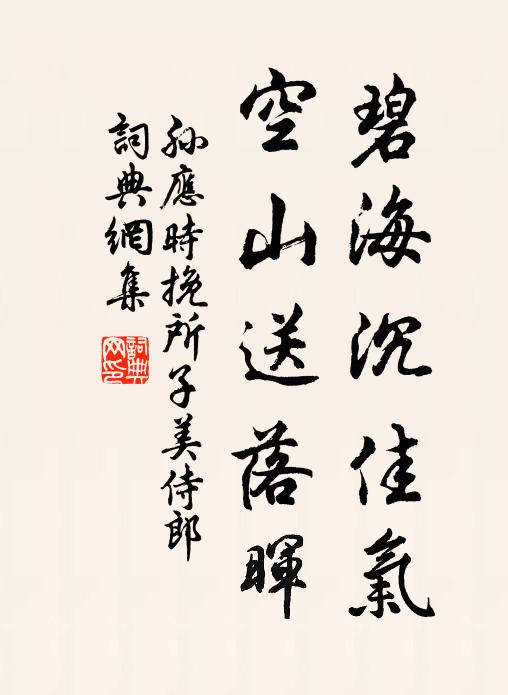 碧海沉佳氣
空山送落暉
孫應時挽所子美侍郎
詞典網集
詞典網印